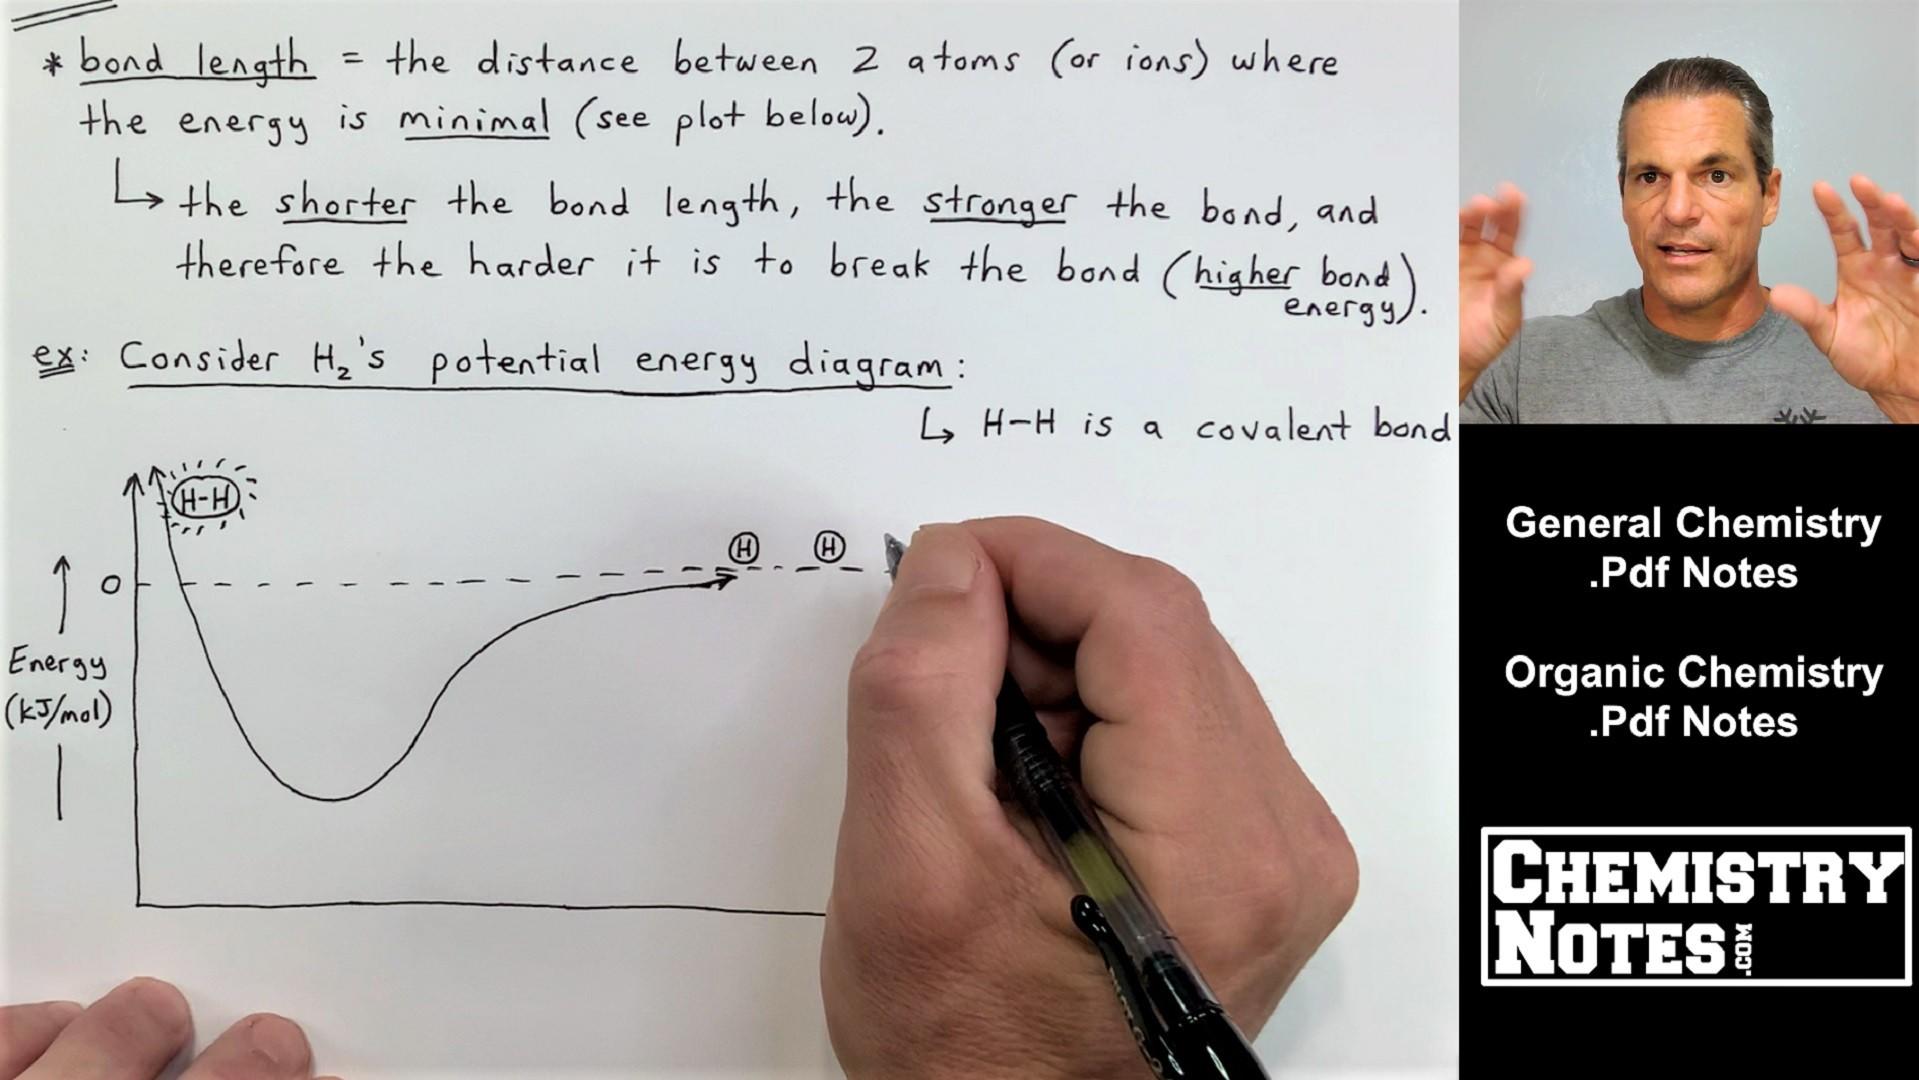 * bond length = the distance between 2 atoms (or ions) where
the energy is minimal (see plot below).
↳ the shorter the bond length, the stronger the bond, and
therefore the harder it is to break the bond (higher bond
energy).
ex: Consider H₂'s potential energy diagram:
↳ H-H is a covalent bond
H-H
H H
0
Energy
(kJ/mol)
General Chemistry
.Pdf Notes
Organic Chemistry
.Pdf Notes
CHEMISTRY
NOTES.COM